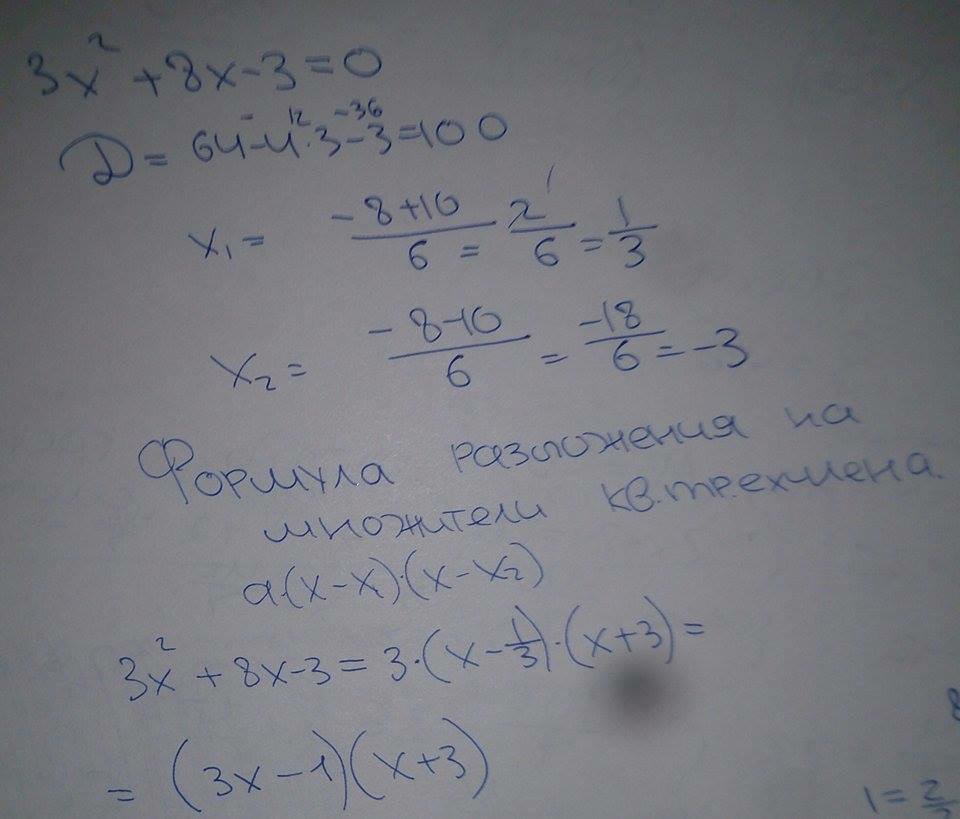 3x² + 8x - 3 = 0
12 -36
D = 64 - 4·3 - 3 = 100
x₁ = (-8+10)/6 = 2/6 = 1/3
x₂ = (-8-10)/6 = -18/6 = -3
Формула разложения на
множители кв.трехчлена.
a·(x-x₁)·(x-x₂)
3x² + 8x - 3 = 3·(x - 1/3)·(x+3) =
= (3x-1)(x+3)
8
1 = 2/2